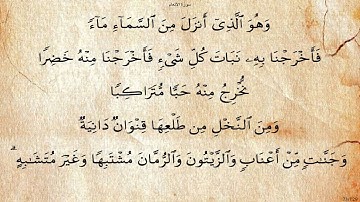 سورة الأنعام
وَهُوَ ٱلَّذِىٓ أَنزَلَ مِنَ ٱلسَّمَآءِ مَآءً
فَأَخْرَجْنَا بِهِۦ نَبَاتَ كُلِّ شَىْءٍ فَأَخْرَجْنَا مِنْهُ خَضِرًا
نُّخْرِجُ مِنْهُ حَبًّا مُّتَرَاكِبًا
وَمِنَ ٱلنَّخْلِ مِن طَلْعِهَا قِنْوَانٌ دَانِيَةٌ
وَجَنَّـٰتٍ مِّنْ أَعْنَابٍ وَٱلزَّيْتُونَ وَٱلرُّمَّانَ مُشْتَبِهًا وَغَيْرَ مُتَشَـٰبِهٍ ۗ